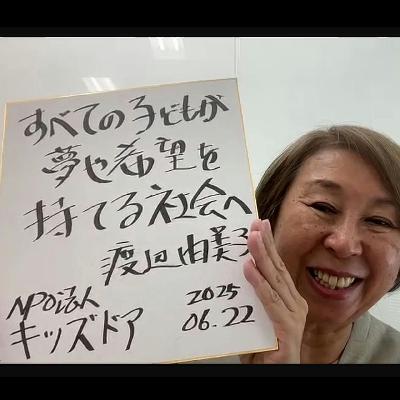 すべての子どもが
夢や希望を
持てる社会へ
渡辺由美子
NPO法人 2025
キッズドア 06.22